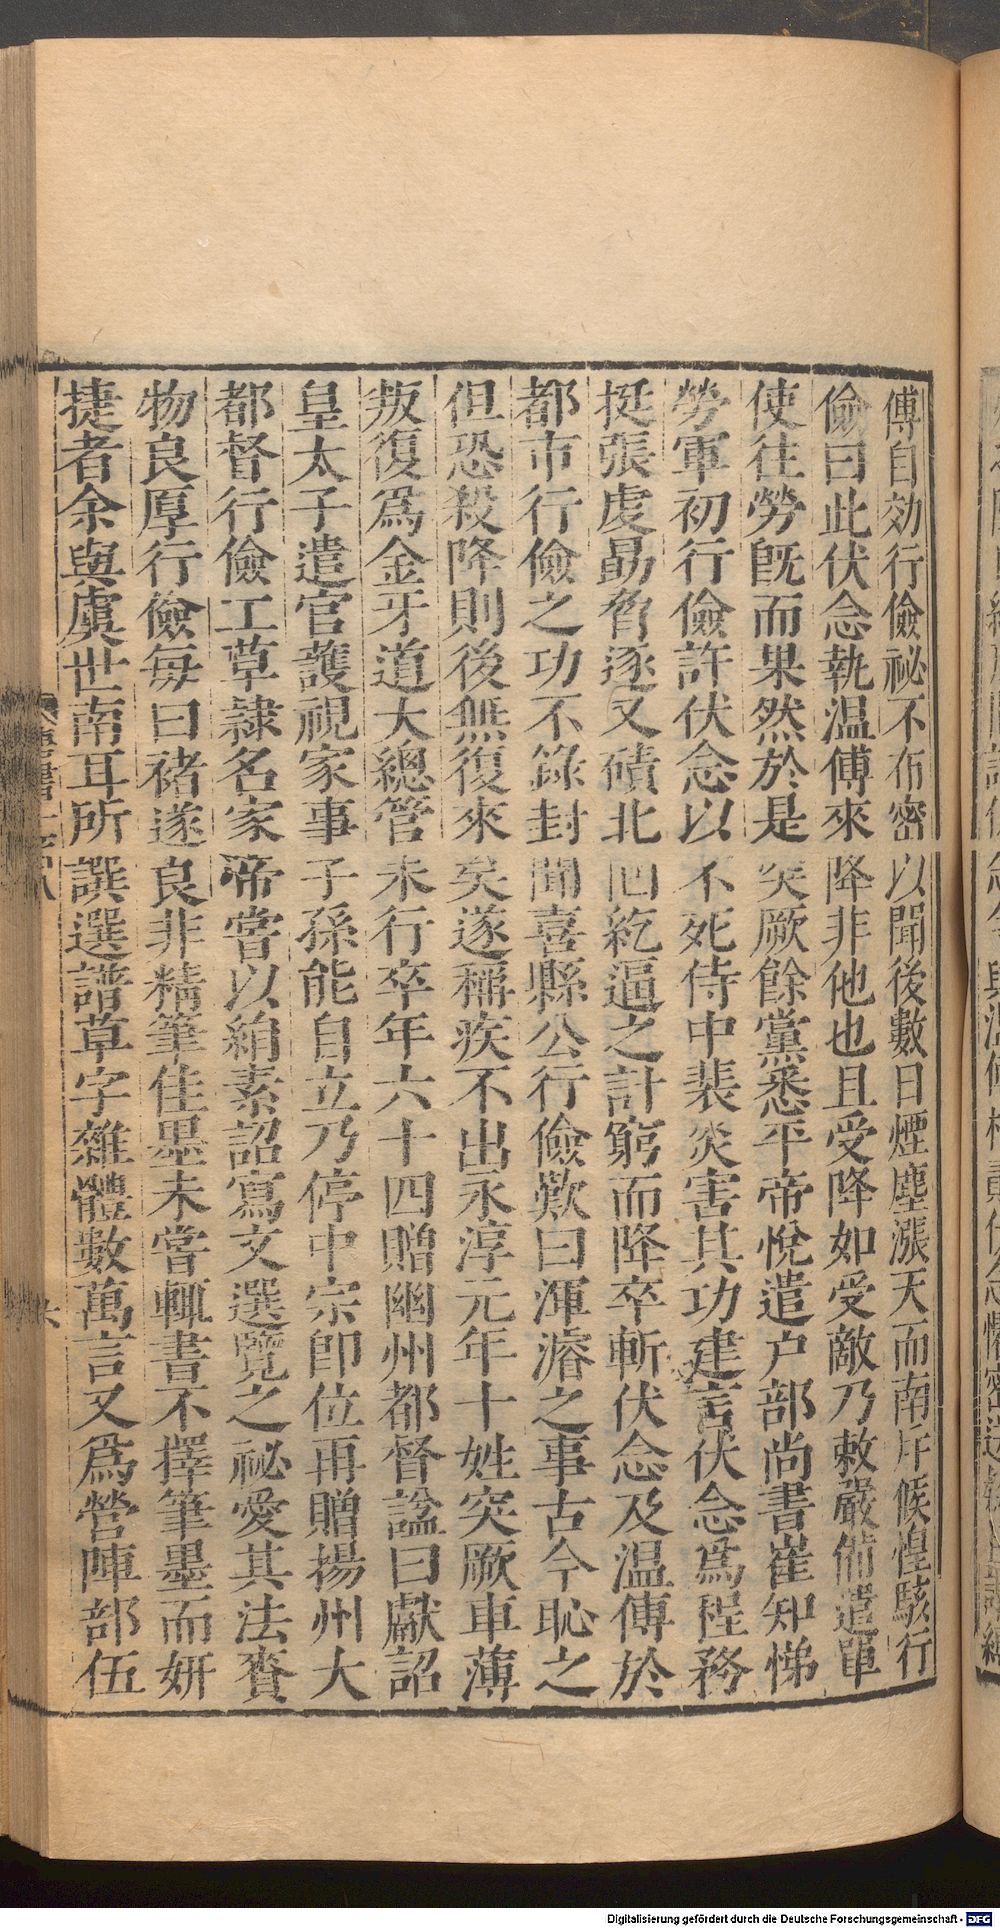 傅自効行儉祕不布密以聞後數日煙塵漲天而南斥候惶駭行
儉曰此伏念執溫傅來降非他也且受降如受敵乃敕嚴備遣單
使往勞既而果然於是突厥餘黨悉平帝悅遣戶部尚書崔知悌
勞軍初行儉許伏念以不死侍中裴炎害其功建言伏念爲程務
挺張虔勗脅逐又磧北回紇逼之計窮而降卒斬伏念及溫傅於
都市行儉之功不錄封聞喜縣公行儉歎曰渾濬之事古今恥之
但恐殺降則後無復來矣遂稱疾不出永淳元年十姓突厥車薄
叛復爲金牙道大總管未行卒年六十四贈幽州都督諡曰獻詔
皇太子遣官護視家事子孫能自立乃停中宗卽位再贈揚州大
都督行儉工草隸名家帝嘗以絹素詔寫文選覽之祕愛其法賚
物良厚行儉每曰褚遂良非精筆佳墨未嘗輒書不擇筆墨而妍
捷者余與虞世南耳所譔選譜草字雜體數萬言又爲營陣部伍
Digitalisierung gefördert durch die Deutsche Forschungsgemeinschaft - DFG